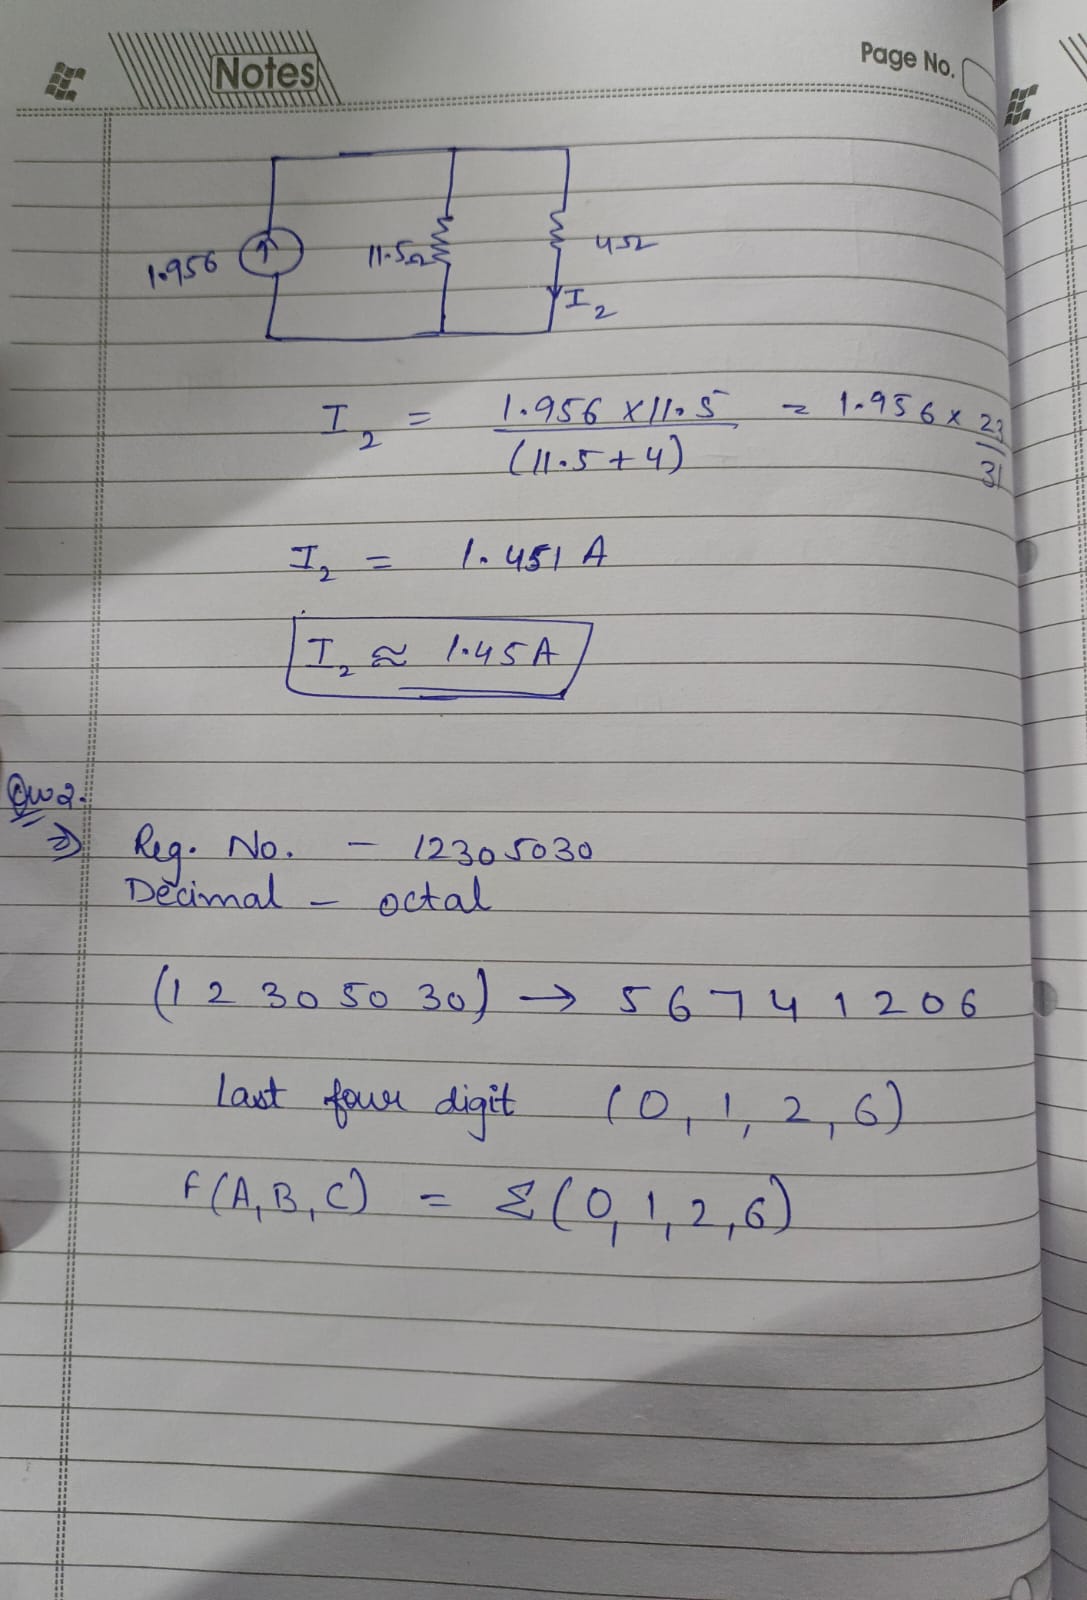 Notes
Page No.
1.956
11.5Ω
4Ω
I2
I2 = 1.956 x 11.5 / (11.5 + 4) = 1.956 x 23/31
I2 = 1.451 A
I2 ≈ 1.45 A
Qu 2.
⇒ Reg. No. - 12305030
Decimal - octal
(1 2 3 0 5 0 3 0) → 5 6 7 4 1 2 0 6
Last four digit (0, 1, 2, 6)
F(A, B, C) = Σ(0, 1, 2, 6)